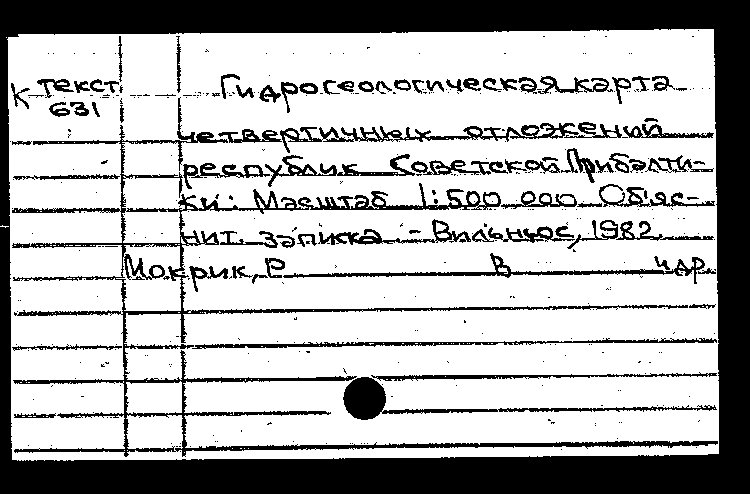 К текст Гидрогеологическая карта
631
четвертичных отложений
республик Советской Прибалти-
ки: Масштаб 1:500 000. Объяс-
нит. записка. - Вильнюс, 1982.
Мокрик, Р В идр.